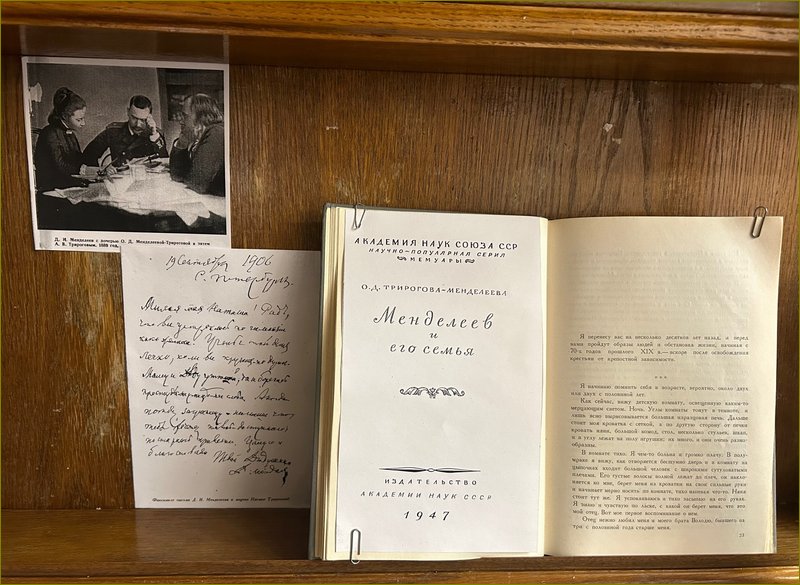 Д. И. Менделеев с дочерью О. Д. Менделеевой-Трироговой и зятем
А. В. Трироговым. 1889 год.
19 Сентября 1906
С. Петербург
Милая моя Наташа! Рад,
что вы
Твой Дедушка
Факсимиле письма Д. И. Менделеева к внучке Наташе Трироговой
АКАДЕМИЯ НАУК СОЮЗА ССР
НАУЧНО-ПОПУЛЯРНАЯ СЕРИЯ
МЕМУАРЫ
О. Д. ТРИРОГОВА-МЕНДЕЛЕЕВА
Менделеев
и
его семья
ИЗДАТЕЛЬСТВО
АКАДЕМИИ НАУК СССР
1947
Я перенесу вас на несколько десятков лет назад, и перед
вами пройдут образы людей и обстановка жизни, начиная с
70-х годов прошлого XIX в.—вскоре после освобождения
крестьян от крепостной зависимости.
* * *
Я начинаю помнить себя в возрасте, вероятно, около двух
или двух с половиной лет.
Как сейчас, вижу детскую комнату, освещенную каким-то
мерцающим светом. Ночь. Углы комнаты тонут в темноте, и
лишь ясно вырисовывается большая изразцовая печь. Дальше
стоит моя кроватка с сеткой, а по другую сторону от печки
кровать няни, большой комод, стол, несколько стульев, шкап,
и в углу лежат на полу игрушки; их много, и они очень разно-
образны.
В комнате тихо. Я чем-то больна и громко плачу. В полу-
мраке я вижу, как отворяется бесшумно дверь и в комнату на
цыпочках входит большой человек с широкими сутуловатыми
плечами. Его густые волосы волной лежат до плеч, он накло-
няется ко мне, берет меня из кроватки на свои сильные руки
и начинает мерно носить по комнате, тихо напевая что-то. Няня
стоит тут же. Я успокаиваюсь и тихо засыпаю на его руках.
Я знаю и чувствую по ласке, с какой он берет меня, что это
мой отец. Вот мое первое воспоминание о нем.
Отец нежно любил меня и моего брата Володю, бывшего на
три с половиной года старше меня.
23